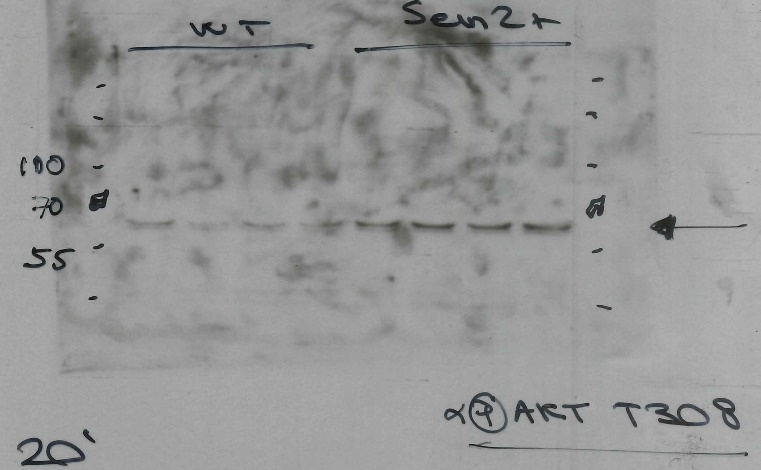 WT Sesn2+
100
70
55
α Ⓟ AKT T308
20'